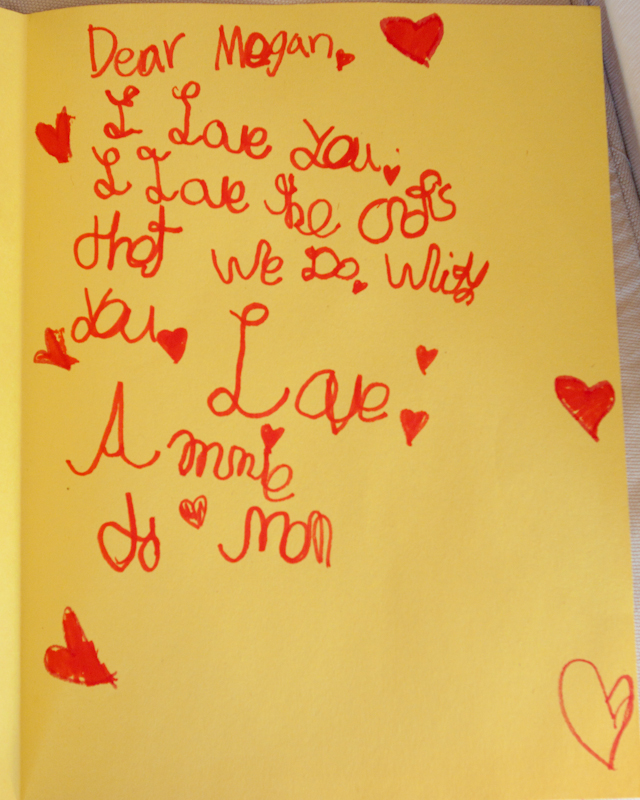 Dear Megan
I Love You.
I Love the crafts
that We Do With
You
Love
Annie
to Mom